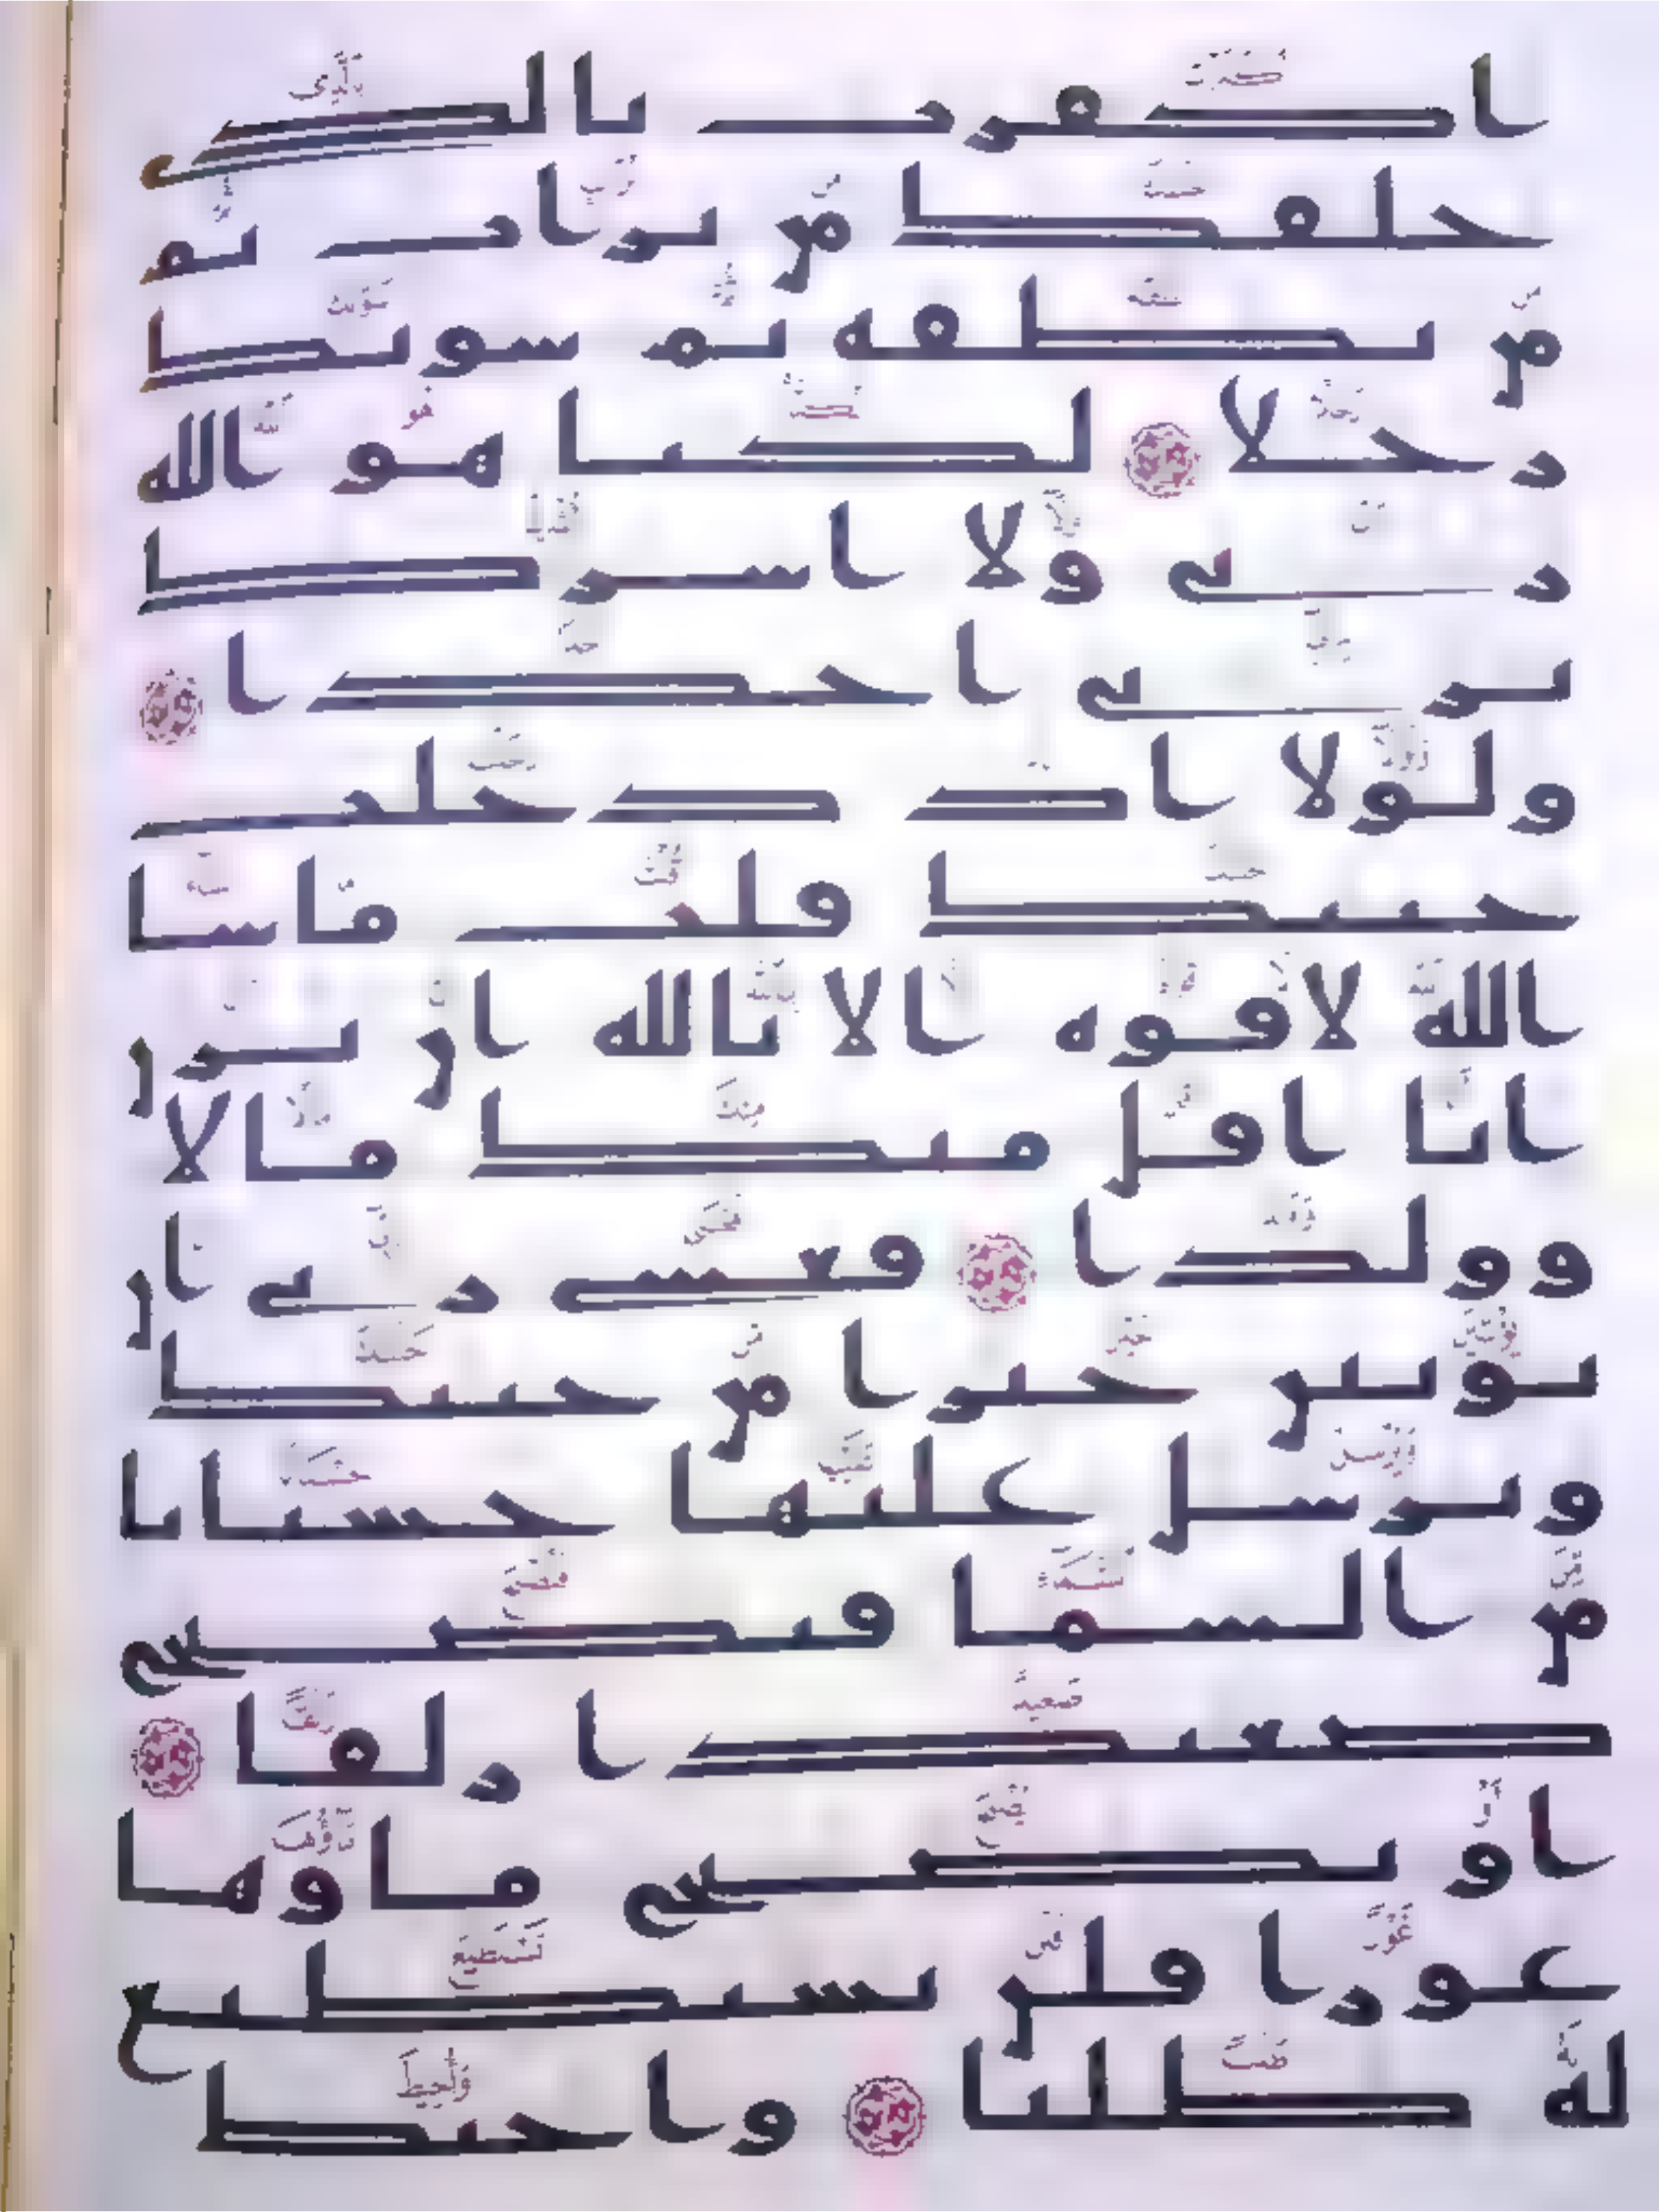 اكفرت بالذى
خلقك من تراب ثم
من نطفة ثم سويك
رجلا لكنا هو الله
ربى ولا اشرك
بربى احدا
ولولا اذ دخلت
جنتك قلت ما شا
الله لا قوة الا بالله ان ترن
انا اقل منك مالا
وولدا فعسى ربى ان
يوتين خيرا من جنتك
ويرسل عليها حسبانا
من السما فتصبح
صعيدا زلقا
او يصبح ماوها
غورا فلن تستطيع
له طلبا واحيط